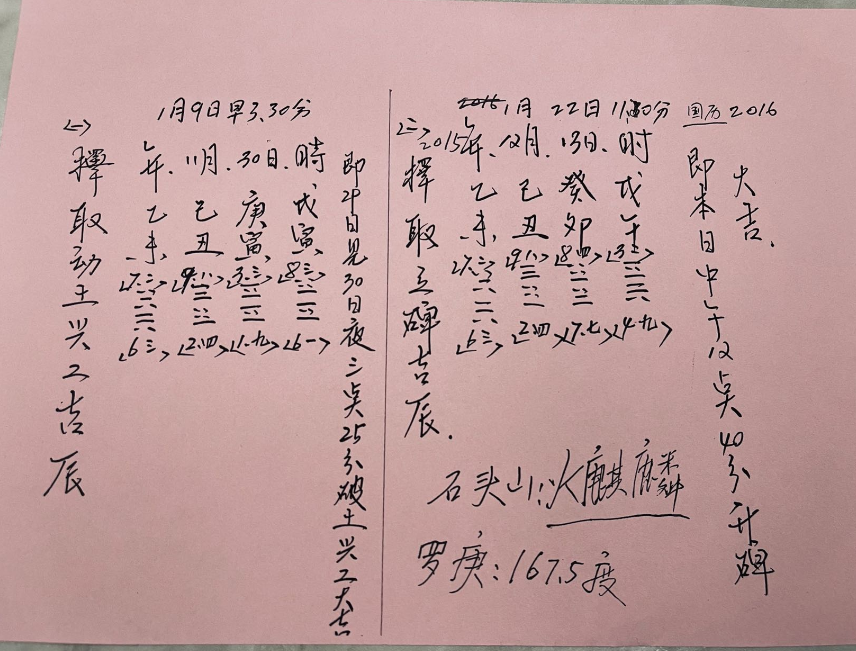 1月9日早3.30分
<一>
擇取动土兴工吉辰
年.11月.30日.時
乙己庚戊
未.丑寅寅
<7.三><9.八><3.三><8.三>
<6三><2.四><1.九><6一>
即29日見30日夜三点25分破土兴工大吉
1月22日11.30分 国历2016
<二>
2015年.12月.13日.时
擇取立碑吉辰.
乙己癸戊
未.丑卯午
<7.三><9八><8.四>
<6三><2四><7.七><4.九>
大吉.
即本日中午12点40分升碑
石头山:火麒麟
罗庚:167.5度